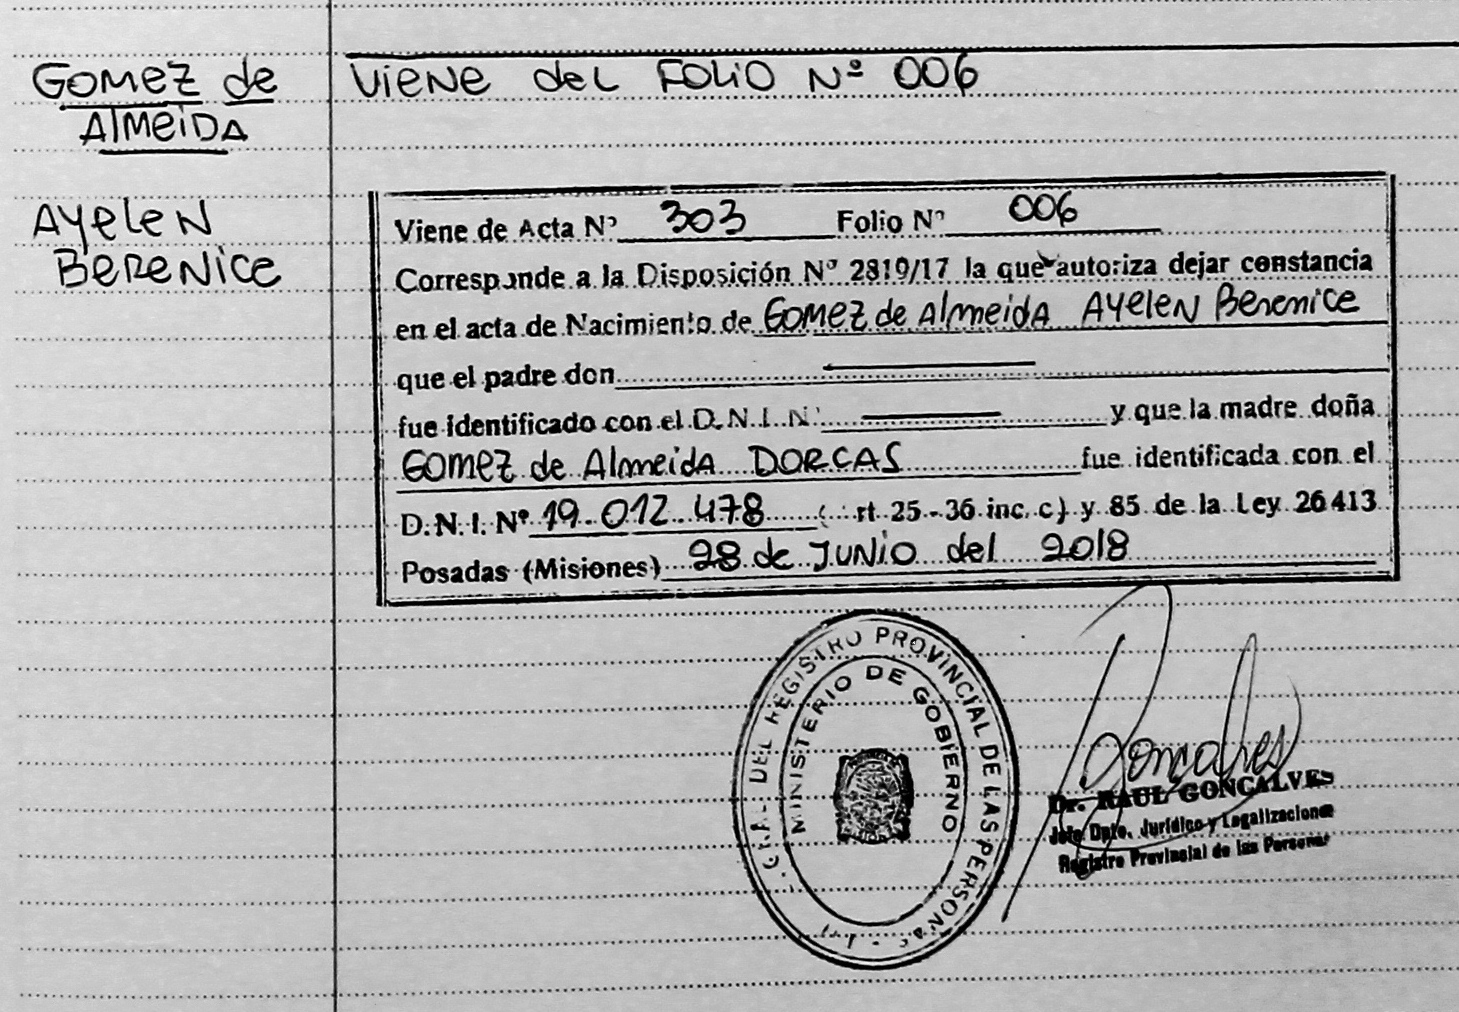 Gomez de
Almeida
Ayelen
Berenice
Viene del Folio Nº 006
Viene de Acta Nº 303 Folio Nº 006
Corresponde a la Disposición Nº 2819/17 la que autoriza dejar constancia
en el acta de Nacimiento de Gomez de Almeida Ayelen Berenice
que el padre don
fue identificado con el D.N.I. N° y que la madre doña
Gomez de Almeida DORCAS fue identificada con el
D.N.I. Nº 19.012.478 rt 25-36 inc. c) y 85 de la Ley 26413
Posadas (Misiones) 28 de Junio del 2018
GRAL. DEL REGISTRO PROVINCIAL DE LAS PERSONAS
MINISTERIO DE GOBIERNO
Goncalves
Dr. RAUL GONCALVES
Jefe Dpto. Jurídico y Legalizaciones
Registro Provincial de las Personas